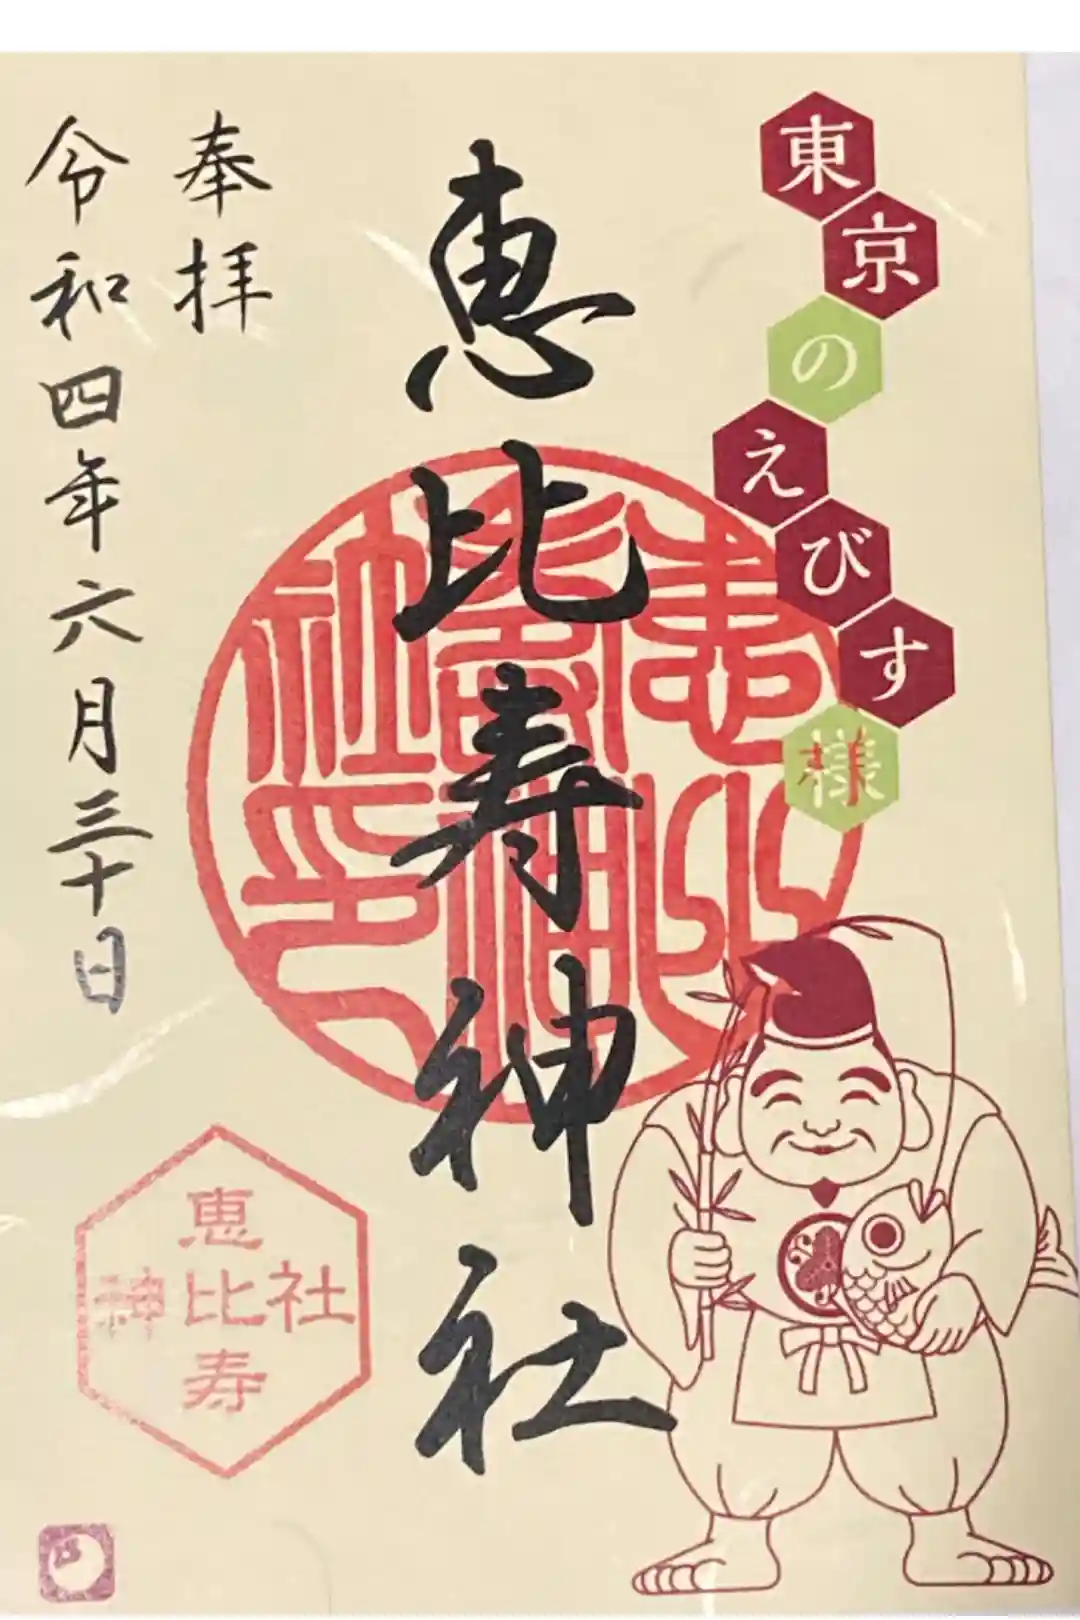 東京のえびす様
恵比寿神社
奉拝
令和四年六月三十日
恵比寿神社印
恵比寿
神社